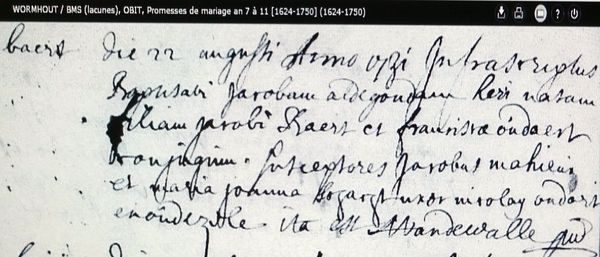 WORMHOUT / BMS (lacunes), OBIT, Promesses de mariage an 7 à 11 [1624-1750] (1624-1750)
baert die 22 augusti Anno infrascriptus
Baptisavi Jacobam aldegondam heri natam
filiam jacobi Baert et franciscæ oudaert
conjugum. Susceptores jacobus mahieu
et maria joanna uxor nicolay oudart
ita est Vandewalle